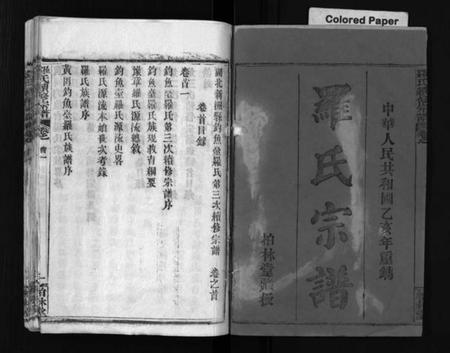 Colored Paper
中華人民共和國乙亥年重鐫
羅氏宗譜
柏林堂藏板
湖北新洲縣釣魚臺羅氏第三次續修宗譜 卷之首
卷首目錄
卷首一
釣魚臺羅氏第三次續修宗譜序
釣魚臺羅氏族規教育綱要
豫章羅氏源流總敘
釣魚臺羅氏源流史畧
羅氏源流本始世次考錄
羅氏族譜序
黃岡釣魚臺羅氏族譜序